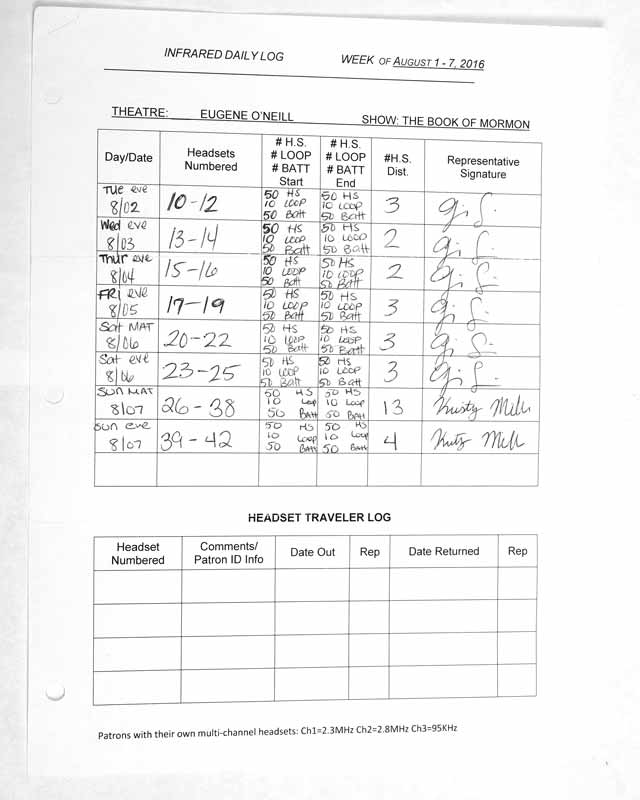 INFRARED DAILY LOG WEEK OF AUGUST 1 - 7, 2016
THEATRE: EUGENE O'NEILL SHOW: THE BOOK OF MORMON
Day/Date Headsets Numbered # H.S. # LOOP # BATT Start # H.S. # LOOP # BATT End #H.S. Dist. Representative Signature
Tue eve 8/02 10-12 50 HS 10 LOOP 50 Batt 50 HS 10 LOOP 50 Batt 3
Wed eve 8/03 13-14 50 HS 10 LOOP 50 Batt 50 HS 10 LOOP 50 Batt 2
Thur eve 8/04 15-16 50 HS 10 LOOP 50 Batt 50 HS 10 LOOP 50 Batt 2
FRI eve 8/05 17-19 50 HS 10 LOOP 50 Batt 50 HS 10 LOOP 50 Batt 3
Sat MAT 8/06 20-22 50 HS 10 LOOP 50 Batt 50 HS 10 LOOP 50 Batt 3
Sat eve 8/06 23-25 50 HS 10 LOOP 50 Batt 50 HS 10 LOOP 50 Batt 3
SUN MAT 8/07 26-38 50 HS 10 Loop 50 BAtt 50 HS 10 Loop 50 BAtt 13
SUN eve 8/07 39-42 50 HS 10 Loop 50 BAtt 50 HS 10 Loop 50 BAtt 4
HEADSET TRAVELER LOG
Headset Numbered Comments/ Patron ID Info Date Out Rep Date Returned Rep
Patrons with their own multi-channel headsets: Ch1=2.3MHz Ch2=2.8MHz Ch3=95KHz